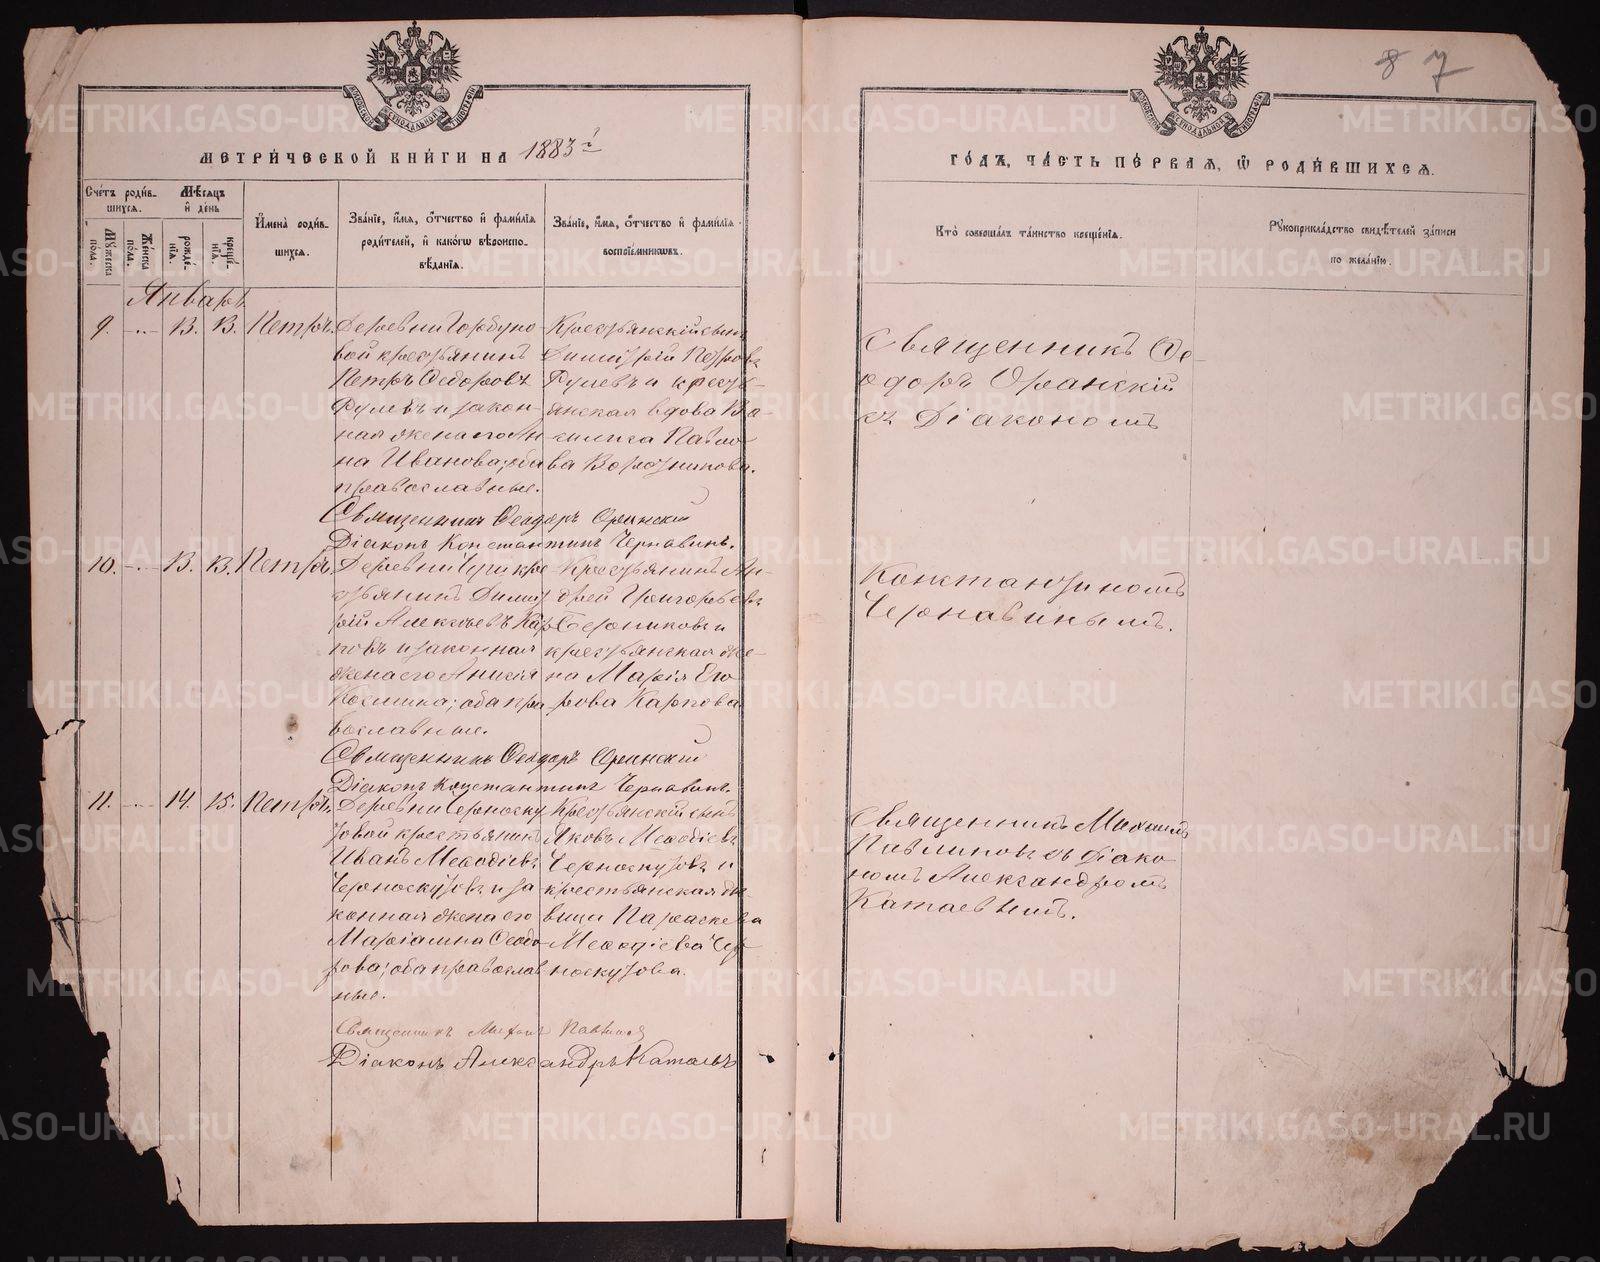 МЕТРИЧЕСКОЙ КНИГИ НА 1883й
ГОДЪ, ЧАСТЬ ПЕРВАЯ, Ѡ РОДИВШИХСЯ.
8 7
Счетъ родив-
шихся.
Мужеска
пола.
Женска
пола.
Мѣсяцъ
и день
рожде-
нія.
креще-
нія.
Имена родив-
шихся.
Званіе, имя, отчество и фамилія
родителей, и какогѡ вѣроиспо-
вѣданія.
Званіе, имя, отчество и фамилія
воспріемникѡвъ.
Кто совершалъ таинство крещенія.
Рукоприкладство свидѣтелей записи
по желанію.
Январь
9. 13. 13. Петръ.
Деревни Горбуно-
вой крестьянинъ
Петръ Ѳедоровъ
Рулевъ и закон-
ная жена его Ан-
на Иванова; оба
православные.
Крестьянскій сынъ
Димитрій Петровъ
Рулевъ и кресть-
янская вдова Ва-
силиса Павло-
ва Воротникова.
Священникъ Ѳео-
доръ Оранскій
съ Діакономъ
Священникъ Ѳеодоръ Оранскій
Діаконъ Константинъ Чернавинъ.
10. 13. 13. Петръ.
Деревни кре-
стьянинъ Димит-
рій Алексѣевъ Кар-
повъ и законная
жена его Анисія
Космина; оба пра-
вославные.
Крестьянинъ Ан-
дрей Григорьевъ
Берсниковъ и
крестьянская же-
на Марія Его-
рова Карпова
Константиномъ
Чернавинымъ.
Священникъ Ѳеодоръ Оранскій
Діаконъ Константинъ Чернавинъ.
11. 14. 15. Петръ.
Деревни Черноску-
товой крестьянинъ
Иванъ Меѳодіевъ
Черноскутовъ и за-
конная жена его
Маріамна Ѳеодо-
рова; оба православ-
ные.
Крестьянскій сынъ
Яковъ Меѳодіевъ
Черноскутовъ и
крестьянская дѣ-
вица Параскева
Меѳодіева Чер-
носкутова.
Священникъ Михаилъ
Павлиновъ съ діако-
номъ Александромъ
Катаевымъ.
Священникъ Михаилъ Павлиновъ
Діаконъ Александръ Катаевъ
METRIKI.GASO-URAL.RU